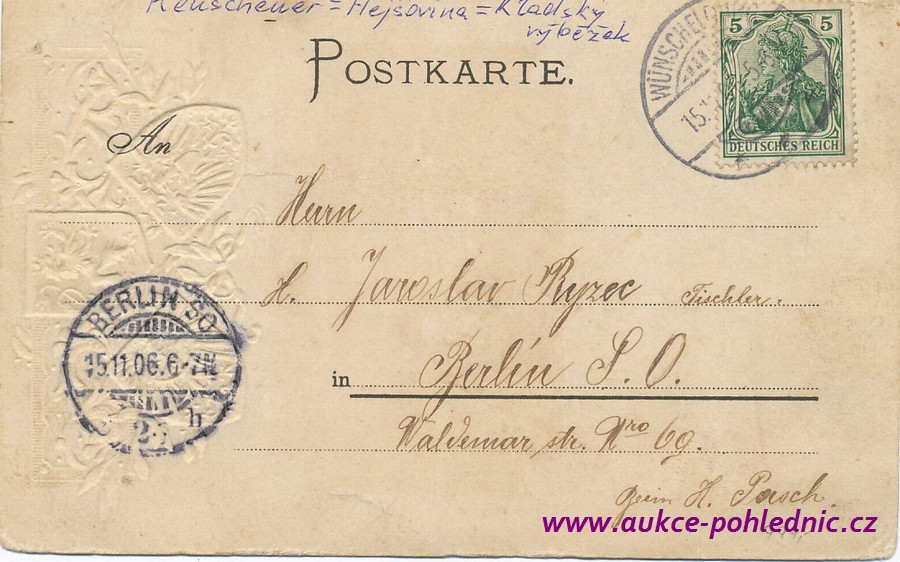 Heuscheuer = Hejšovina = Kladský
výběžek
POSTKARTE.
WÜNSCHELBURG
15.11.
5 5
DEUTSCHES REICH
An
Herrn
H. Jaroslav Ryzec Tischler.
BERLIN SO
15.11.06.6-7N
h
in Berlin S. O.
Waldemar str. Nro 69.
Beim H. Pasch.
www.aukce-pohlednic.cz